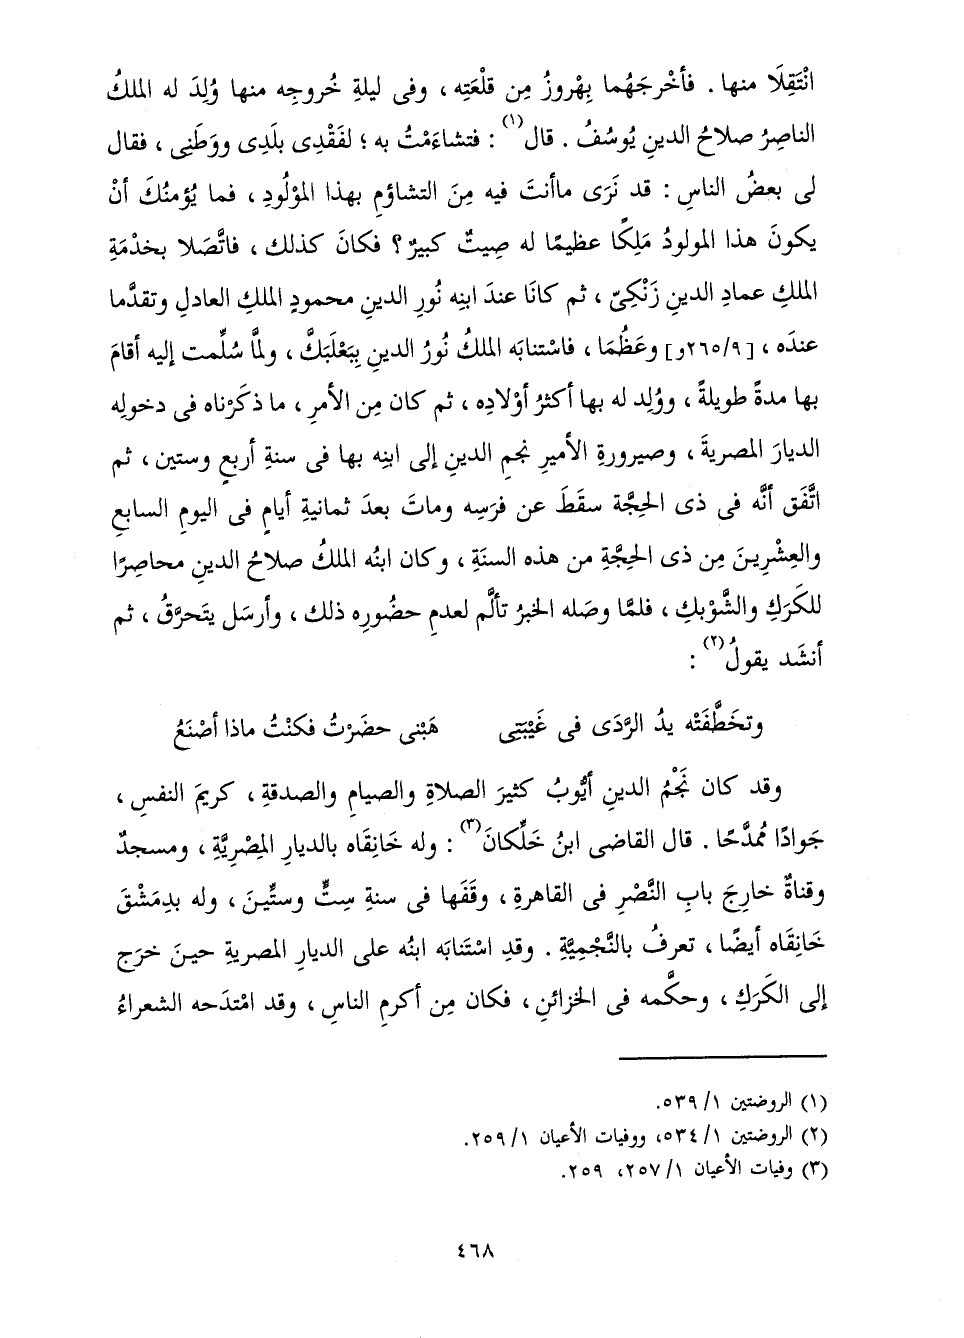 انْتَقِلَا منها . فأخْرجَهُما بِهْروزُ مِن قلْعَتِه ، وفى ليلةِ خُروجِه منها وُلِدَ له الملكُ
الناصِرُ صلاحُ الدينِ يُوسُفُ . قال(١) : فتشاءَمْتُ به ؛ لفَقْدِى بلَدِى ووَطَنِى ، فقال
لى بعضُ الناسِ : قد نَرَى ماأنتَ فيه مِنَ التشاؤمِ بهذا المؤْلُودِ ، فما يُؤمنُكَ أنْ
يكونَ هذا المولودُ مَلِكًا عظيمًا له صِيتٌ كبيرٌ ؟ فكانَ كذلك ، فاتَّصَلا بخدْمَةِ
الملكِ عمادِ الدينِ زَنْكِىِّ ، ثم كانَا عندَ ابنِه نُورِ الدينِ محمودٍ الملكِ العادلِ وتقدَّما
عندَه ، [٢٦٥/٩و] وعَظُمَا ، فاسْتنابَه الملكُ نُورُ الدينِ بِبَعْلَبَكَّ ، ولمَّا سُلِّمت إليه أقامَ
بها مدةً طويلةً ، ووُلِد له بها أكثرُ أوْلادِه ، ثم كان مِن الأمرِ ، ما ذكَرْناه فى دخولِه
الديارَ المصريةَ ، وصيرورةِ الأميرِ نجمِ الدينِ إلى ابنِه بها فى سنةِ أربعٍ وستين ، ثم
اتَّفَق أنَّه فى ذى الحِجَّة سقَطَ عن فرَسِه وماتَ بعدَ ثمانيةِ أيامٍ فى اليومِ السابعِ
والعِشْرِينَ مِن ذى الحِجَّةِ من هذه السنَةِ ، وكان ابنُه الملكُ صلاحُ الدينِ محاصِرًا
للكَرَكِ والشَّوْبكِ ، فلمَّا وصَله الخبرُ تألَّم لعدمِ حضُورِه ذلك ، وأرسَل يتَحرَّقُ ، ثم
أنشَد يقولُ(٢) :
وتخَطَّفَتْه يدُ الرَّدَى فى غَيْبَتِى هَبْنى حضَرْتُ فكنْتُ ماذا أصْنَعُ
وقد كان نَجْمُ الدينِ أيُّوبُ كثيرَ الصلاةِ والصيامِ والصدقةِ ، كريمَ النفسِ ،
جَوادًا مُمدَّحًا . قال القاضى ابنُ خَلِّكانَ(٣) : وله خَانِقَاه بالديارِ المِصْرِيَّةِ ، ومسجدٌ
وقناةٌ خارِجَ بابِ النَّصْرِ فى القاهرةِ ، وقَفَها فى سنةِ سِتٍّ وستِّينَ ، وله بدِمَشْقَ
خَانِقَاه أيضًا ، تعرفُ بالنَّجْمِيَّةِ . وقدِ اسْتَنابَه ابنُه على الديارِ المصريةِ حينَ خرَج
إلى الكَرَكِ ، وحكَّمه فى الخزائنِ ، فكان مِن أكرمِ الناسِ ، وقد امْتدَحه الشعراءُ
(١) الروضتين ١/ ٥٣٩.
(٢) الروضتين ١/ ٥٣٤، ووفيات الأعيان ١/ ٢٥٩.
(٣) وفيات الأعيان ١/ ٢٥٧، ٢٥٩.
٤٦٨